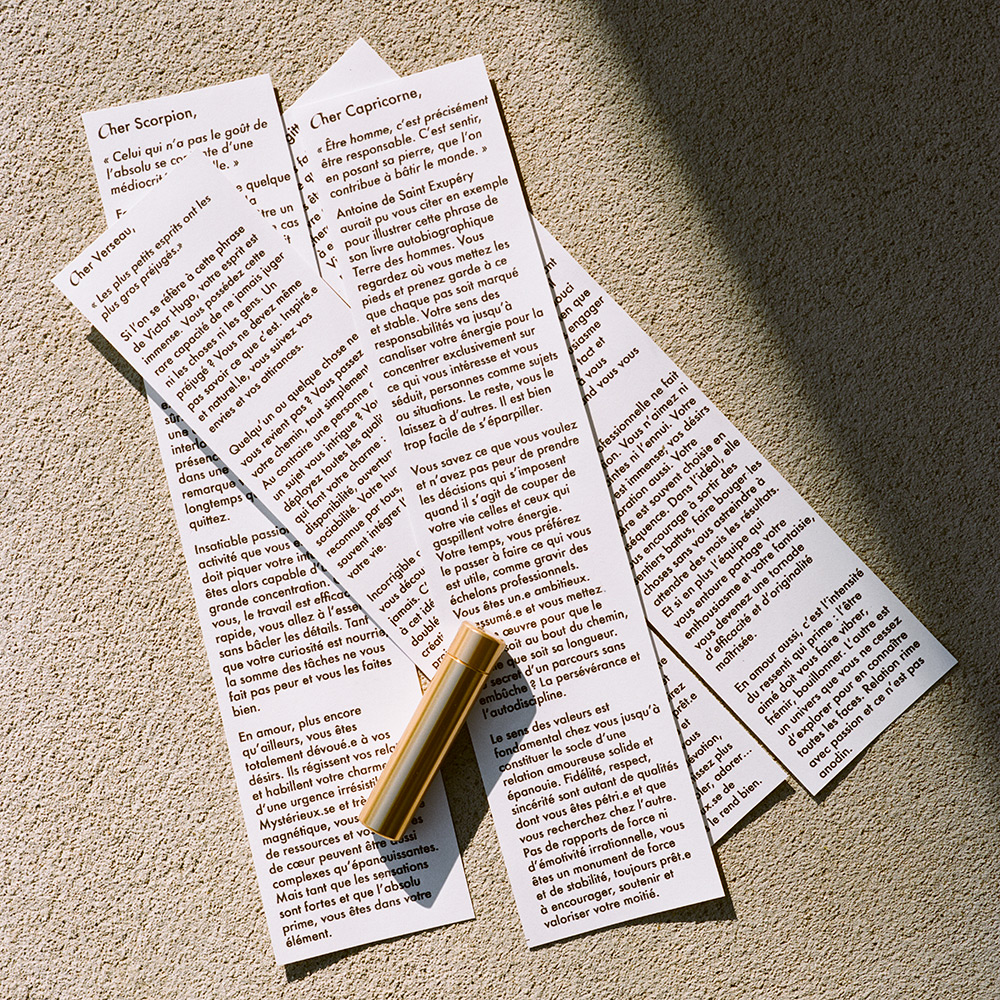 Cher Scorpion,
« Celui qui n'a pas le goût de
l'absolu se d'une
»
quelque
être un
cas
sûr
une
interlo
présence
dans une
remarque
longtemps
quittez.
Insatiable
activité que vous
doit piquer votre
êtes alors capable
grande concentration.
vous, le travail est
rapide, vous allez à
sans bâcler les détails. Tant
que votre curiosité est
la somme des tâches ne vous
fait pas peur et vous les faites
bien.
En amour, plus encore
qu'ailleurs, vous êtes
totalement dévoué.e à vos
désirs. Ils régissent vos
et habillent votre
d'une urgence
Mystérieux.se et
magnétique,
de ressources et
de cœur peuvent être aussi
complexes qu'épanouissantes.
Mais tant que les sensations
sont fortes et que l'absolu
prime, vous êtes dans votre
élément.
Cher Verseau,
« Les plus petits esprits ont les
plus gros préjugés.»
Si l'on se réfère à cette phrase
de Victor Hugo, votre esprit est
immense. Vous possédez cette
rare capacité de ne jamais juger
ni les choses ni les gens. Un
préjugé ? Vous ne devez même
pas savoir ce que c'est. Inspiré.e
et naturel.le, vous suivez vos
envies et vos attirances.
Quelqu'un ou quelque chose ne
vous revient pas ? Vous passez
votre chemin, tout simplement.
Au contraire une personne
un sujet vous intrigue ? Vous
déployez toutes les
qui font votre charme :
disponibilité, ouverture
sociabilité. Votre
reconnue par tous,
souvent intégrer
votre vie.
Incorrigible
vous
jamais. C
à cet
doublé
Cher Capricorne,
« Être homme, c'est précisément
être responsable. C'est sentir,
en posant sa pierre, que l'on
contribue à bâtir le monde. »
Antoine de Saint Exupéry
aurait pu vous citer en exemple
pour illustrer cette phrase de
son livre autobiographique
Terre des hommes. Vous
regardez où vous mettez les
pieds et prenez garde à ce
que chaque pas soit marqué
et stable. Votre sens des
responsabilités va jusqu'à
canaliser votre énergie pour la
concentrer exclusivement sur
ce qui vous intéresse et vous
séduit, personnes comme sujets
ou situations. Le reste, vous le
laissez à d'autres. Il est bien
trop facile de s'éparpiller.
Vous savez ce que vous voulez
et n'avez pas peur de prendre
les décisions qui s'imposent
quand il s'agit de couper de
votre vie celles et ceux qui
gaspillent votre énergie.
Votre temps, vous préférez
le passer à faire ce qui vous
est utile, comme gravir des
échelons professionnels.
Vous êtes un.e ambitieux.
assumé.e et vous mettez
œuvre pour que le
soit au bout du chemin,
que soit sa longueur.
secret d'un parcours sans
embûche ? La persévérance et
l'autodiscipline.
Le sens des valeurs est
fondamental chez vous jusqu'à
constituer le socle d'une
relation amoureuse solide et
épanouie. Fidélité, respect,
sincérité sont autant de qualités
dont vous êtes pétri.e et que
vous recherchez chez l'autre.
Pas de rapports de force ni
d'émotivité irrationnelle, vous
êtes un monument de force
et de stabilité, toujours prêt.e
à encourager, soutenir et
valoriser votre moitié.
engager
tact et
vous
ne fait
Vous n'aimez ni
ni l'ennui. Votre
est immense, vos désirs
aussi. Votre
est souvent choisie en
Dans l'idéal, elle
encourage à sortir des
sentiers battus, faire bouger les
choses sans vous astreindre à
attendre des mois les résultats.
Et si en plus l'équipe qui
vous entoure partage votre
enthousiasme et votre fantaisie,
vous devenez une tornade
d'efficacité et d'originalité
maîtrisée.
En amour aussi, c'est l'intensité
du ressenti qui prime : l'être
aimé doit vous faire vibrer,
frémir, bouillonner. L'autre est
un univers que vous ne cessez
d'explorer pour en connaître
toutes les faces. Relation rime
avec passion et ce n'est pas
anodin.
plus
adorer...
de
rend bien.